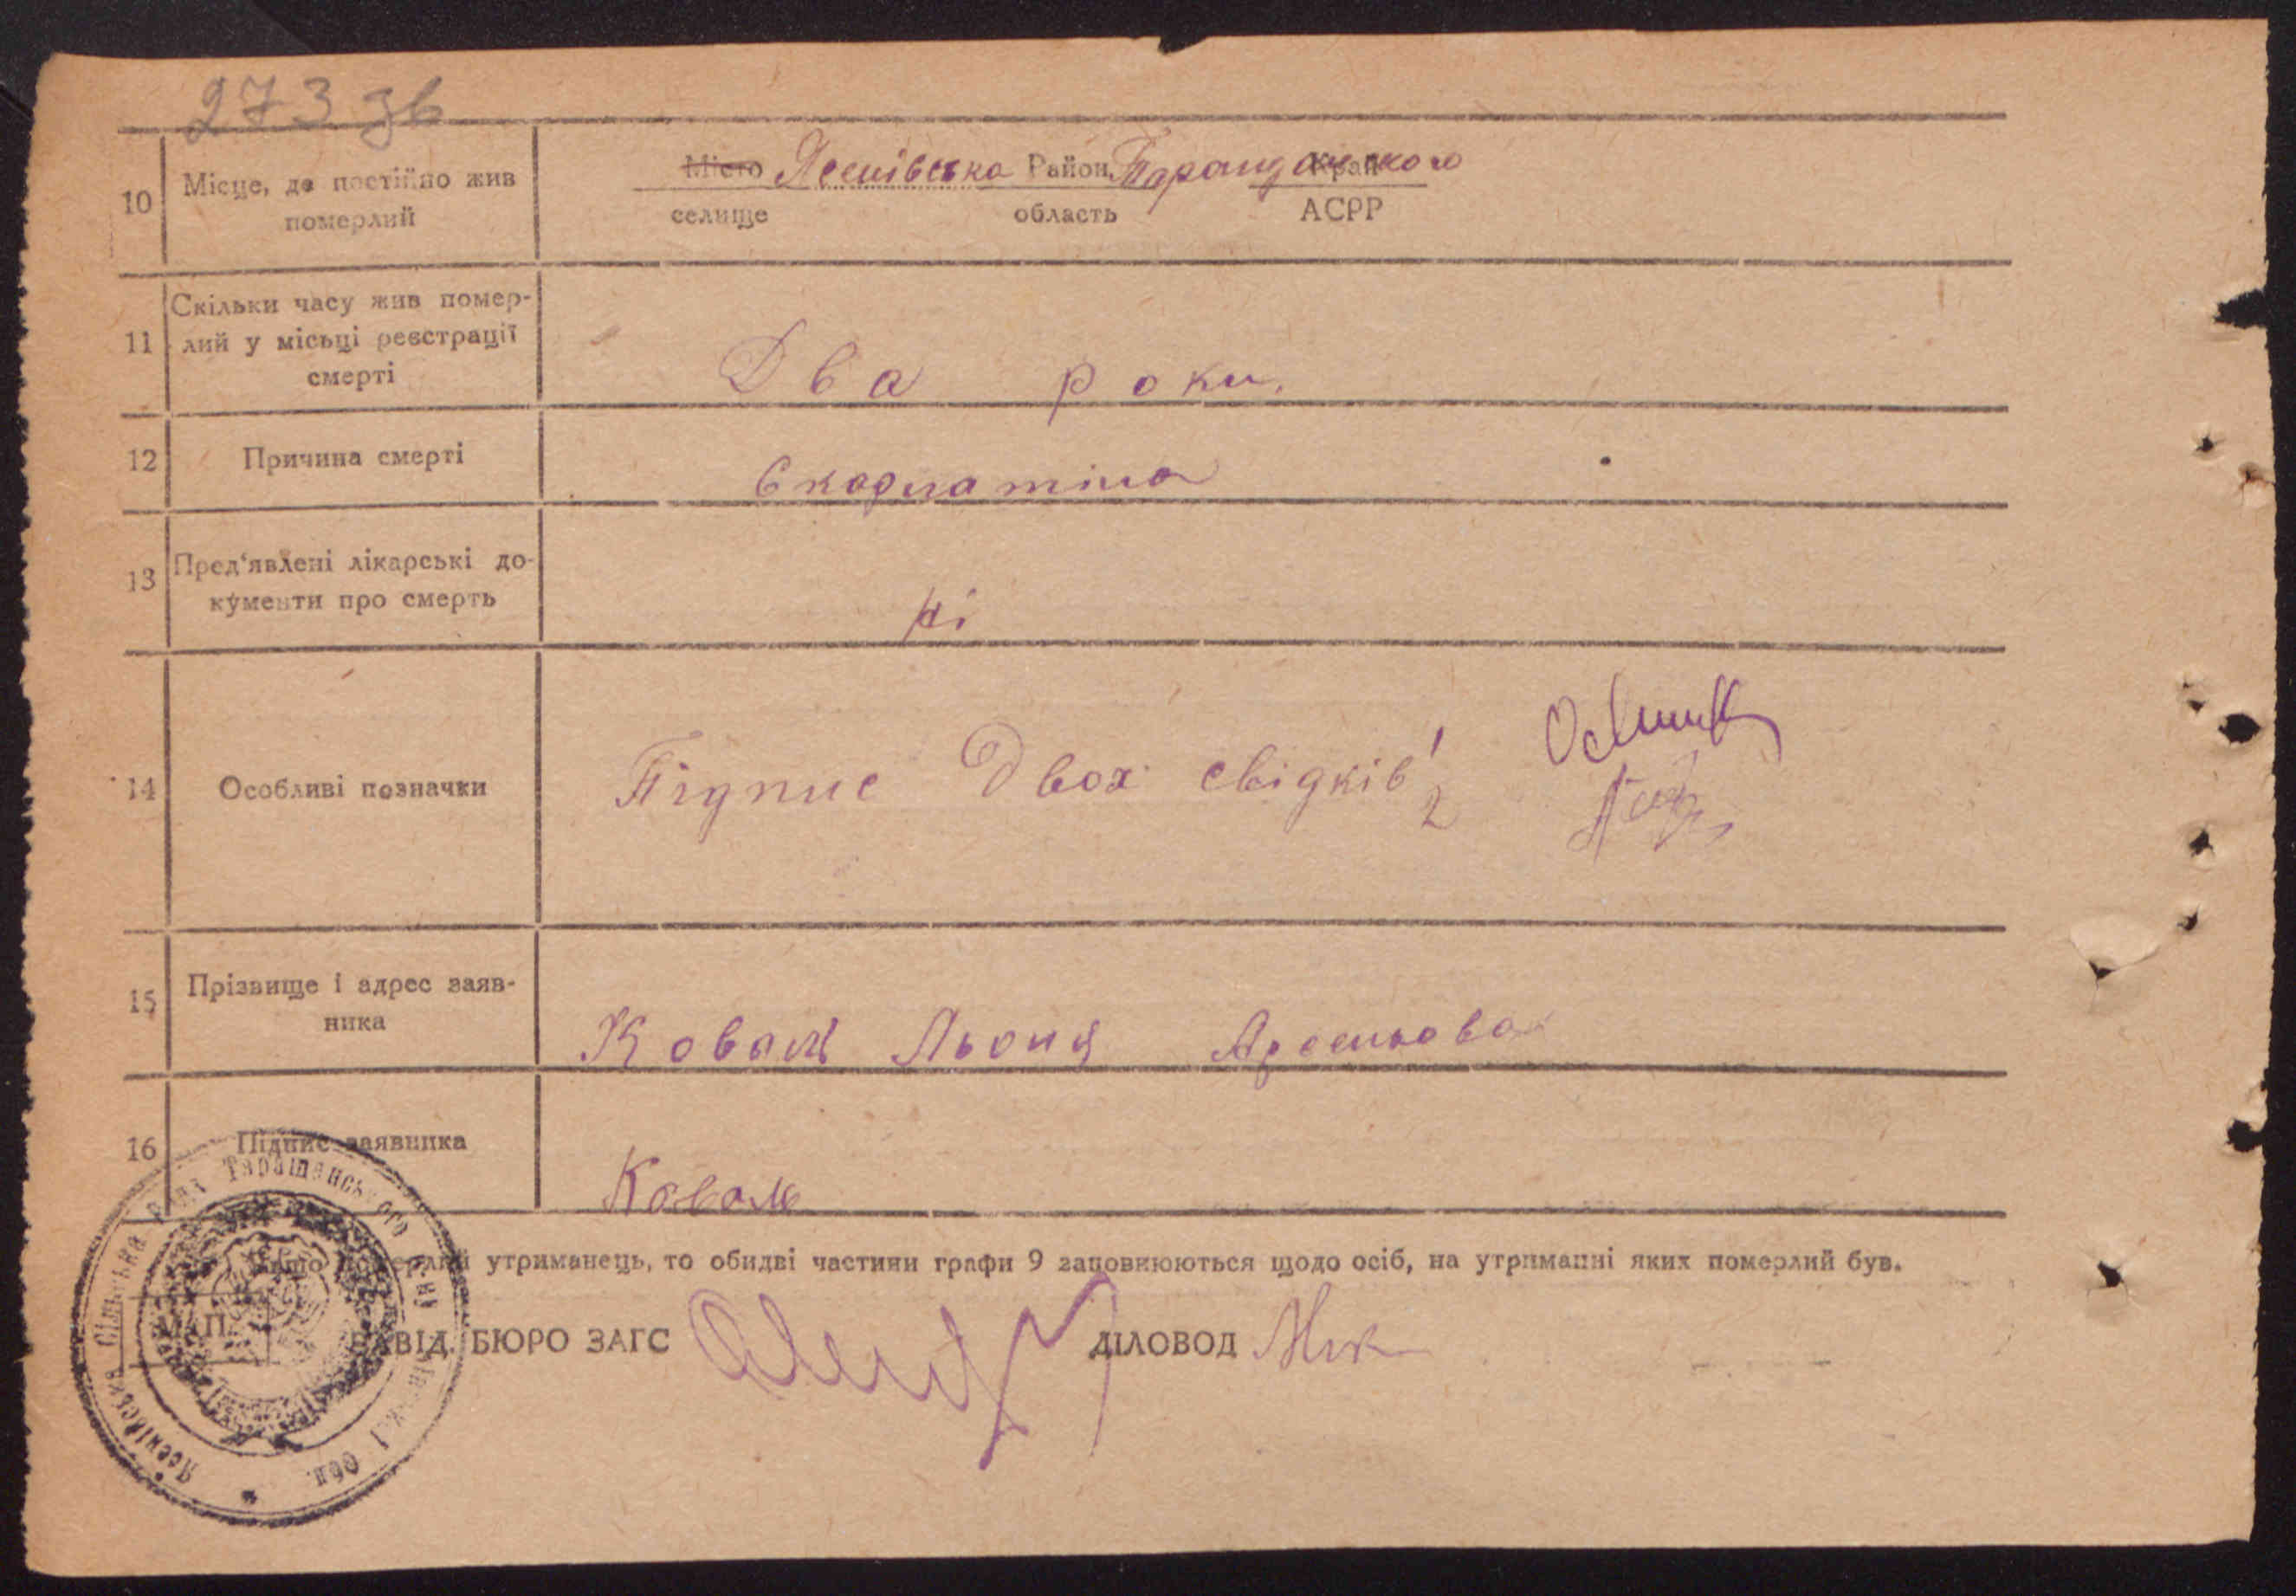 273 зв
10 Місце, де постійно жив померлий
Місто Ясенівська Район Таращанского Край
селище область АСРР
11 Скільки часу жив помер-
лий у місьці реєстрації
смерті
Два роки.
12 Причина смерті
Скарлатіна
13 Пред'явлені лікарські до-
кументи про смерть
Ні
14 Особливі позначки
Підпис Двох свідків 1
2
15 Прізвище і адрес заяв-
ника
Коваль Льоня
16 Підпис заявника
Коваль
померлий утриманець, то обидві частини графи 9 заповнюються щодо осіб, на утриманні яких померлий був.
М. П.
ЗАВІД. БЮРО ЗАГС ДІЛОВОД
Ясенівська Сільська рада Таращанського р-ну Київської Обл.